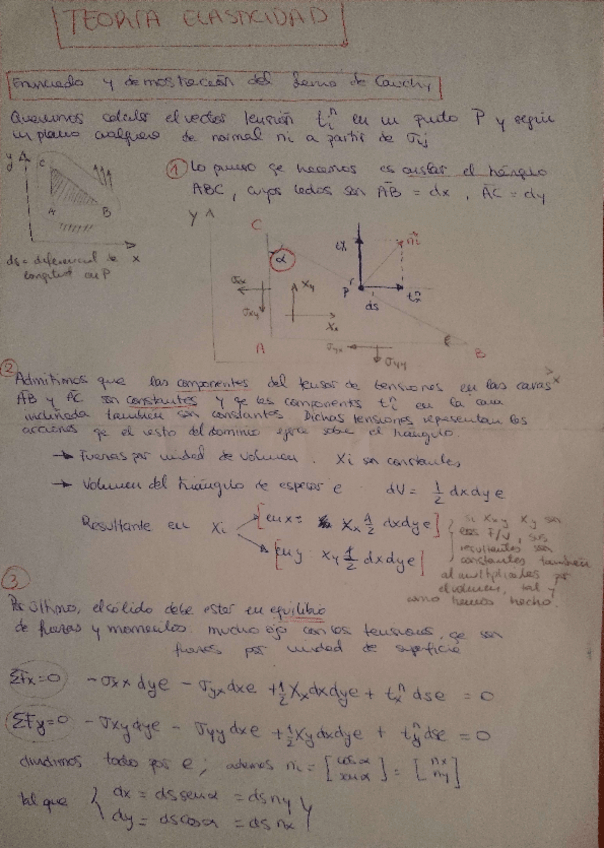 TEORÍA ELASTICIDAD
Enunciado y demostración del Lema de Cauchy
Queremos calcular el vector tensión tᵢⁿ en un punto P y según
un plano cualquiera de normal nᵢ a partir de σᵢⱼ
① Lo primero qe hacemos es aislar el triángulo
ABC, cuyos lados son AB = dx, AC = dy
y
C
A
B
x
ds = diferencial de
longitud en P
y
C
α
σxx
σxy
Xy
Xx
A
ty
nᵢ
P
ds
txⁿ
σyx
σyy
B
x
② Admitimos que las componentes del tensor de tensiones en las caras
AB y AC son constantes y qe las componentes tᵢⁿ en la cara
inclinada también son constantes. Dichas tensiones representan las
acciones qe el resto del dominio ejerce sobre el triángulo
→ Fuerzas por unidad de volumen. Xi son constantes
→ Volumen del triángulo de espesor e dV = 1/2 dxdye
Resultante en Xi
[en x = Xx 1/2 dxdye]
[en y Xy 1/2 dxdye]
Si Xx y Xy son
esas F/V, sus
resultantes son
constantes también
al multiplicarlos por
el volumen, tal y
como hemos hecho.
③
Por último, el sólido debe estar en equilibrio
de fuerzas y momentos. mucho ojo con las tensiones, qe son
fuerzas por unidad de superficie
ΣFx=0 - σxx dye - σyx dxe + 1/2 Xx dxdye + txⁿ dse = 0
ΣFy=0 - σxy dye - σyy dxe + 1/2 Xy dxdye + tyⁿ dse = 0
dividimos todo por e; además nᵢ = [cosα senα] = [nx ny]
tal que { dx = ds senα = ds ny
dy = ds cosα = ds nx }